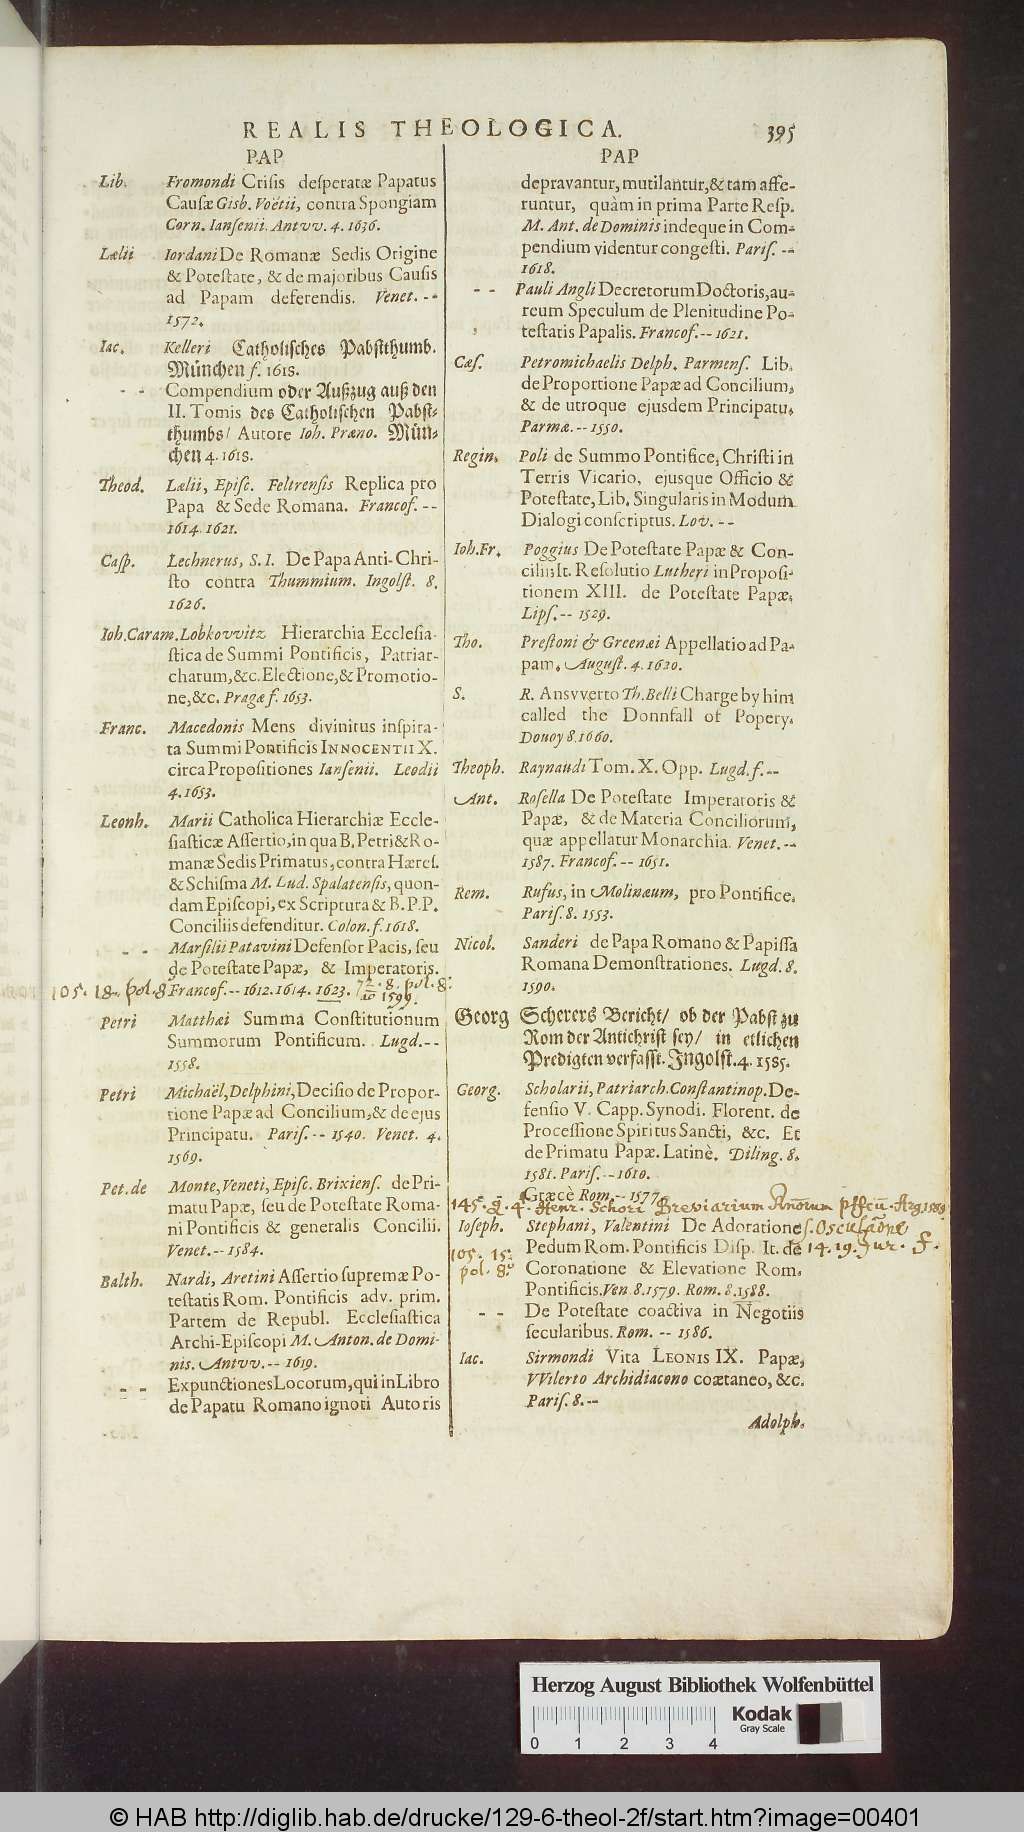 REALIS THEOLOGICA. 395
PAP
Lib. Fromondi Crisis desperatæ Papatus
Causæ Gisb. Voëtii, contra Spongiam
Corn. Iansenii. Antvv. 4. 1636.
Lælii Iordani De Romanæ Sedis Origine
& Potestate, & de majoribus Causis
ad Papam deferendis. Venet. --
1572.
Iac. Kelleri Catholisches Pabstthumb.
München f. 1618.
- - Compendium oder Außzug auß den
II. Tomis des Catholischen Pabst-
thumbs/ Autore Ioh. Præno. Mün-
chen 4. 1618.
Theod. Lælii, Episc. Feltrensis Replica pro
Papa & Sede Romana. Francof. --
1614. 1621.
Casp. Lechnerus, S. I. De Papa Anti-Chri-
sto contra Thummium. Ingolst. 8.
1626.
Ioh. Caram. Lobkovvitz Hierarchia Ecclesia-
stica de Summi Pontificis, Patriar-
charum, &c. Electione, & Promotio-
ne, &c. Pragæ f. 1653.
Franc. Macedonis Mens divinitus inspira-
ta Summi Pontificis INNOCENTII X.
circa Propositiones Iansenii. Leodii
4. 1653.
Leonh. Marii Catholica Hierarchiæ Eccle-
siasticæ Assertio, in qua B. Petri & Ro-
manæ Sedis Primatus, contra Hæres.
& Schisma M. Lud. Spalatensis, quon-
dam Episcopi, ex Scriptura & B. P. P.
Conciliis defenditur. Colon. f. 1618.
- - Marsilii Patavini Defensor Pacis, seu
de Potestate Papæ, & Imperatoris.
105. 18. pol. 8 Francof. -- 1612. 1614. 1623. 8. pol. 8.
1599.
Petri Matthæi Summa Constitutionum
Summorum Pontificum. Lugd. --
1558.
Petri Michaël, Delphini, Decisio de Propor-
tione Papæ ad Concilium, & de ejus
Principatu. Paris. -- 1540. Venet. 4.
1569.
Pet. de Monte, Veneti, Episc. Brixiens. de Pri-
matu Papæ, seu de Potestate Roma-
ni Pontificis & generalis Concilii.
Venet. -- 1584.
Balth. Nardi, Aretini Assertio supremæ Po-
testatis Rom. Pontificis adv. prim.
Partem de Republ. Ecclesiastica
Archi-Episcopi M. Anton. de Domi-
nis. Antvv. -- 1619.
- - Expunctiones Locorum, qui in Libro
de Papatu Romano ignoti Autoris
PAP
depravantur, mutilantur, & tam affe-
runtur, quàm in prima Parte Resp.
M. Ant. de Dominis indeque in Com-
pendium videntur congesti. Paris. --
1618.
- - Pauli Angli Decretorum Doctoris, au-
reum Speculum de Plenitudine Po-
testatis Papalis. Francof. -- 1621.
Cæs. Petromichaelis Delph. Parmens. Lib.
de Proportione Papæ ad Concilium,
& de utroque ejusdem Principatu.
Parmæ. -- 1550.
Regin. Poli de Summo Pontifice, Christi in
Terris Vicario, ejusque Officio &
Potestate, Lib. Singularis in Modum
Dialogi conscriptus. Lov. --
Ioh. Fr. Poggius De Potestate Papæ & Con-
cilii, It. Resolutio Lutheri in Proposi-
tionem XIII. de Potestate Papæ,
Lips. -- 1529.
Tho. Prestoni & Greenæi Appellatio ad Pa-
pam. August. 4. 1620.
S. R. Ansvverto Th. Belli Charge by him
called the Donnfall of Popery.
Douoy 8. 1660.
Theoph. Raynaudi Tom. X. Opp. Lugd. f. --
Ant. Rosella De Potestate Imperatoris &
Papæ, & de Materia Conciliorum,
quæ appellatur Monarchia. Venet. --
1587. Francof. -- 1651.
Rem. Rufus, in Molinæum, pro Pontifice.
Paris. 8. 1553.
Nicol. Sanderi de Papa Romano & Papissa
Romana Demonstrationes. Lugd. 8.
1590.
Georg Scherers Bericht/ ob der Pabst zu
Rom der Antichrist sey/ in etlichen
Predigten verfasst. Ingolst. 4. 1585.
Georg. Scholarii, Patriarch. Constantinop. De-
fensio V. Capp. Synodi. Florent. de
Processione Spiritus Sancti, &c. Et
de Primatu Papæ. Latinè. Diling. 8.
1581. Paris. -- 1610.
- - Græcè Rom. -- 1577.
145. Q. 4. Henr. Schori Breviarium
Ioseph. Stephani, Valentini De Adoratione s. Osculatione
Pedum Rom. Pontificis Disp. It. de 14. 19. Jur. f.
105. 15.
pol. 8.
Coronatione & Elevatione Rom.
Pontificis. Ven. 8. 1579. Rom. 8. 1588.
- - De Potestate coactiva in Negotiis
secularibus. Rom. -- 1586.
Iac. Sirmondi Vita LEONIS IX. Papæ,
VVilerto Archidiacono coætaneo, &c.
Paris. 8. --
Adolph.
Herzog August Bibliothek Wolfenbüttel
Kodak
Gray Scale
0 1 2 3 4
© HAB http://diglib.hab.de/drucke/129-6-theol-2f/start.htm?image=00401